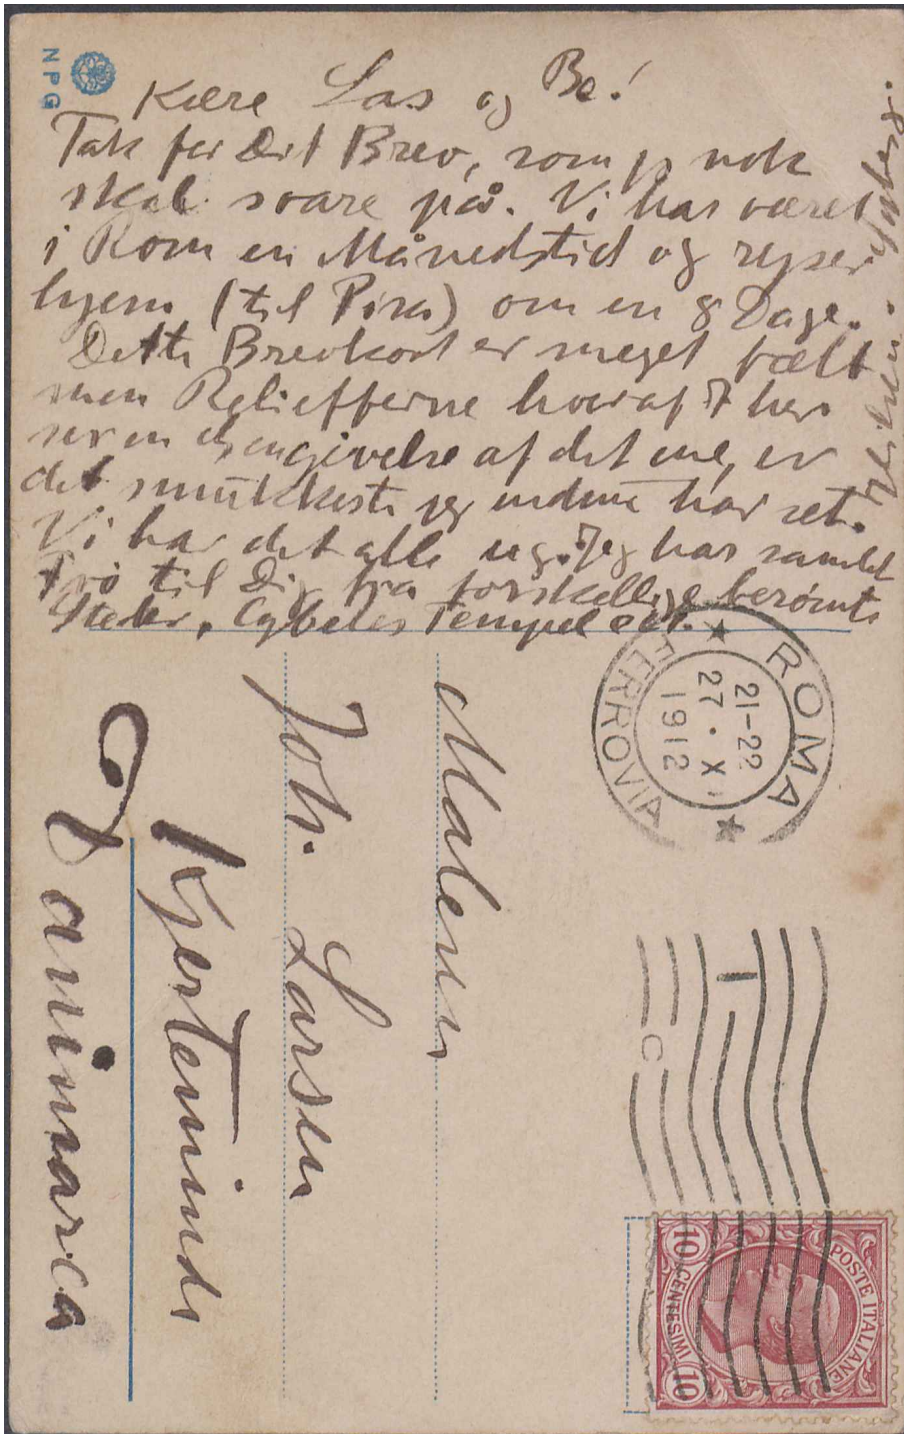 NPG
Kære Las og Be!
Tak for Dit Brev, som jeg nok
skal svare på. Vi har været
i Rom en Månedstid og rejser
hjem (til Pisa) om en 8 Dage.
Dette Brevkort er meget fælt
men Relieffferne hvoraf I her
ser en Gengivelse af det ene, er
det smukkeste jeg endnu har set.
Vi har det alle ug. Jeg har samlet
Frö til Dig fra forskellige berömte
Steder, Cybeles Tempel ect.
Maleren
Joh. Larsen
Kjerteminde
Danimarca
ROMA
FERROVIA
21-22
27 · X
1912
POSTE ITALIANE
10 CENTESIMI 10